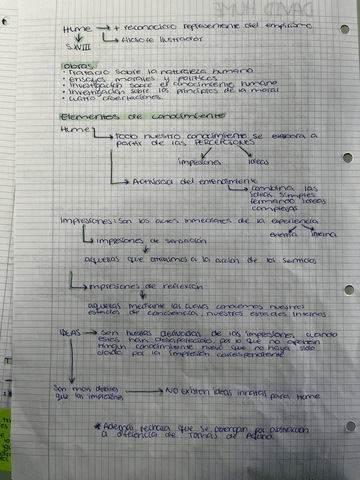 DAVID HUME
Hume → + reconocido representante del empirismo
→ filósofo ilustrador
S.XVIII
Obras
• Tratado sobre la naturaleza humana
• Ensayos morales y políticos
• Investigación sobre el conocimiento humano
• Investigación sobre los principios de la moral
• Cuatro disertaciones.
Elementos de conocimiento
Hume
→ TODO nuestro conocimiento se elabora a
partir de las PERCEPCIONES
impresiones ideas
→ Actividad del entendimiento
→ combina las
ideas simples
formando ideas
complejas
Impresiones: Son los actos inmediatos de la experiencia
externa interna
→ impresiones de sensación
aquellas que atribuimos a la acción de los sentidos
→ impresiones de reflexión
aquellas mediante las cuales conocemos nuestros
estados de conciencia, nuestros estados internos.
IDEAS → Son huellas derivadas de las impresiones cuando
estas han desaparecido, por lo que no aportan
ningún conocimiento nuevo que no haya sido
dado por la impresión correspondiente
Son más débiles → NO existen ideas innatas para Hume
que las impresiones
* Además, rechaza que se obtengan por abstracción
a diferencia de Tomás de Aquino.